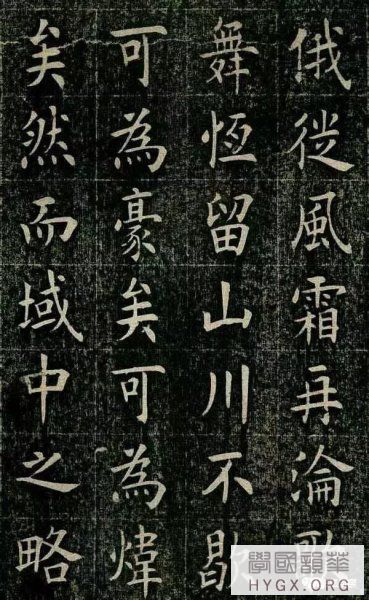 俄從風霜再淪歌
舞恆留山川不歇
可為豪矣可為煒
矣然而域中之略
學國韻華
HYGX.ORG